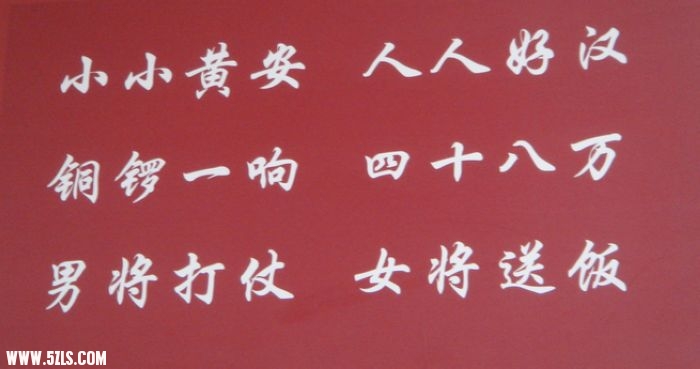 小小黄安 人人好汉
铜锣一响 四十八万
男将打仗 女将送饭
WWW.5ZLS.COM